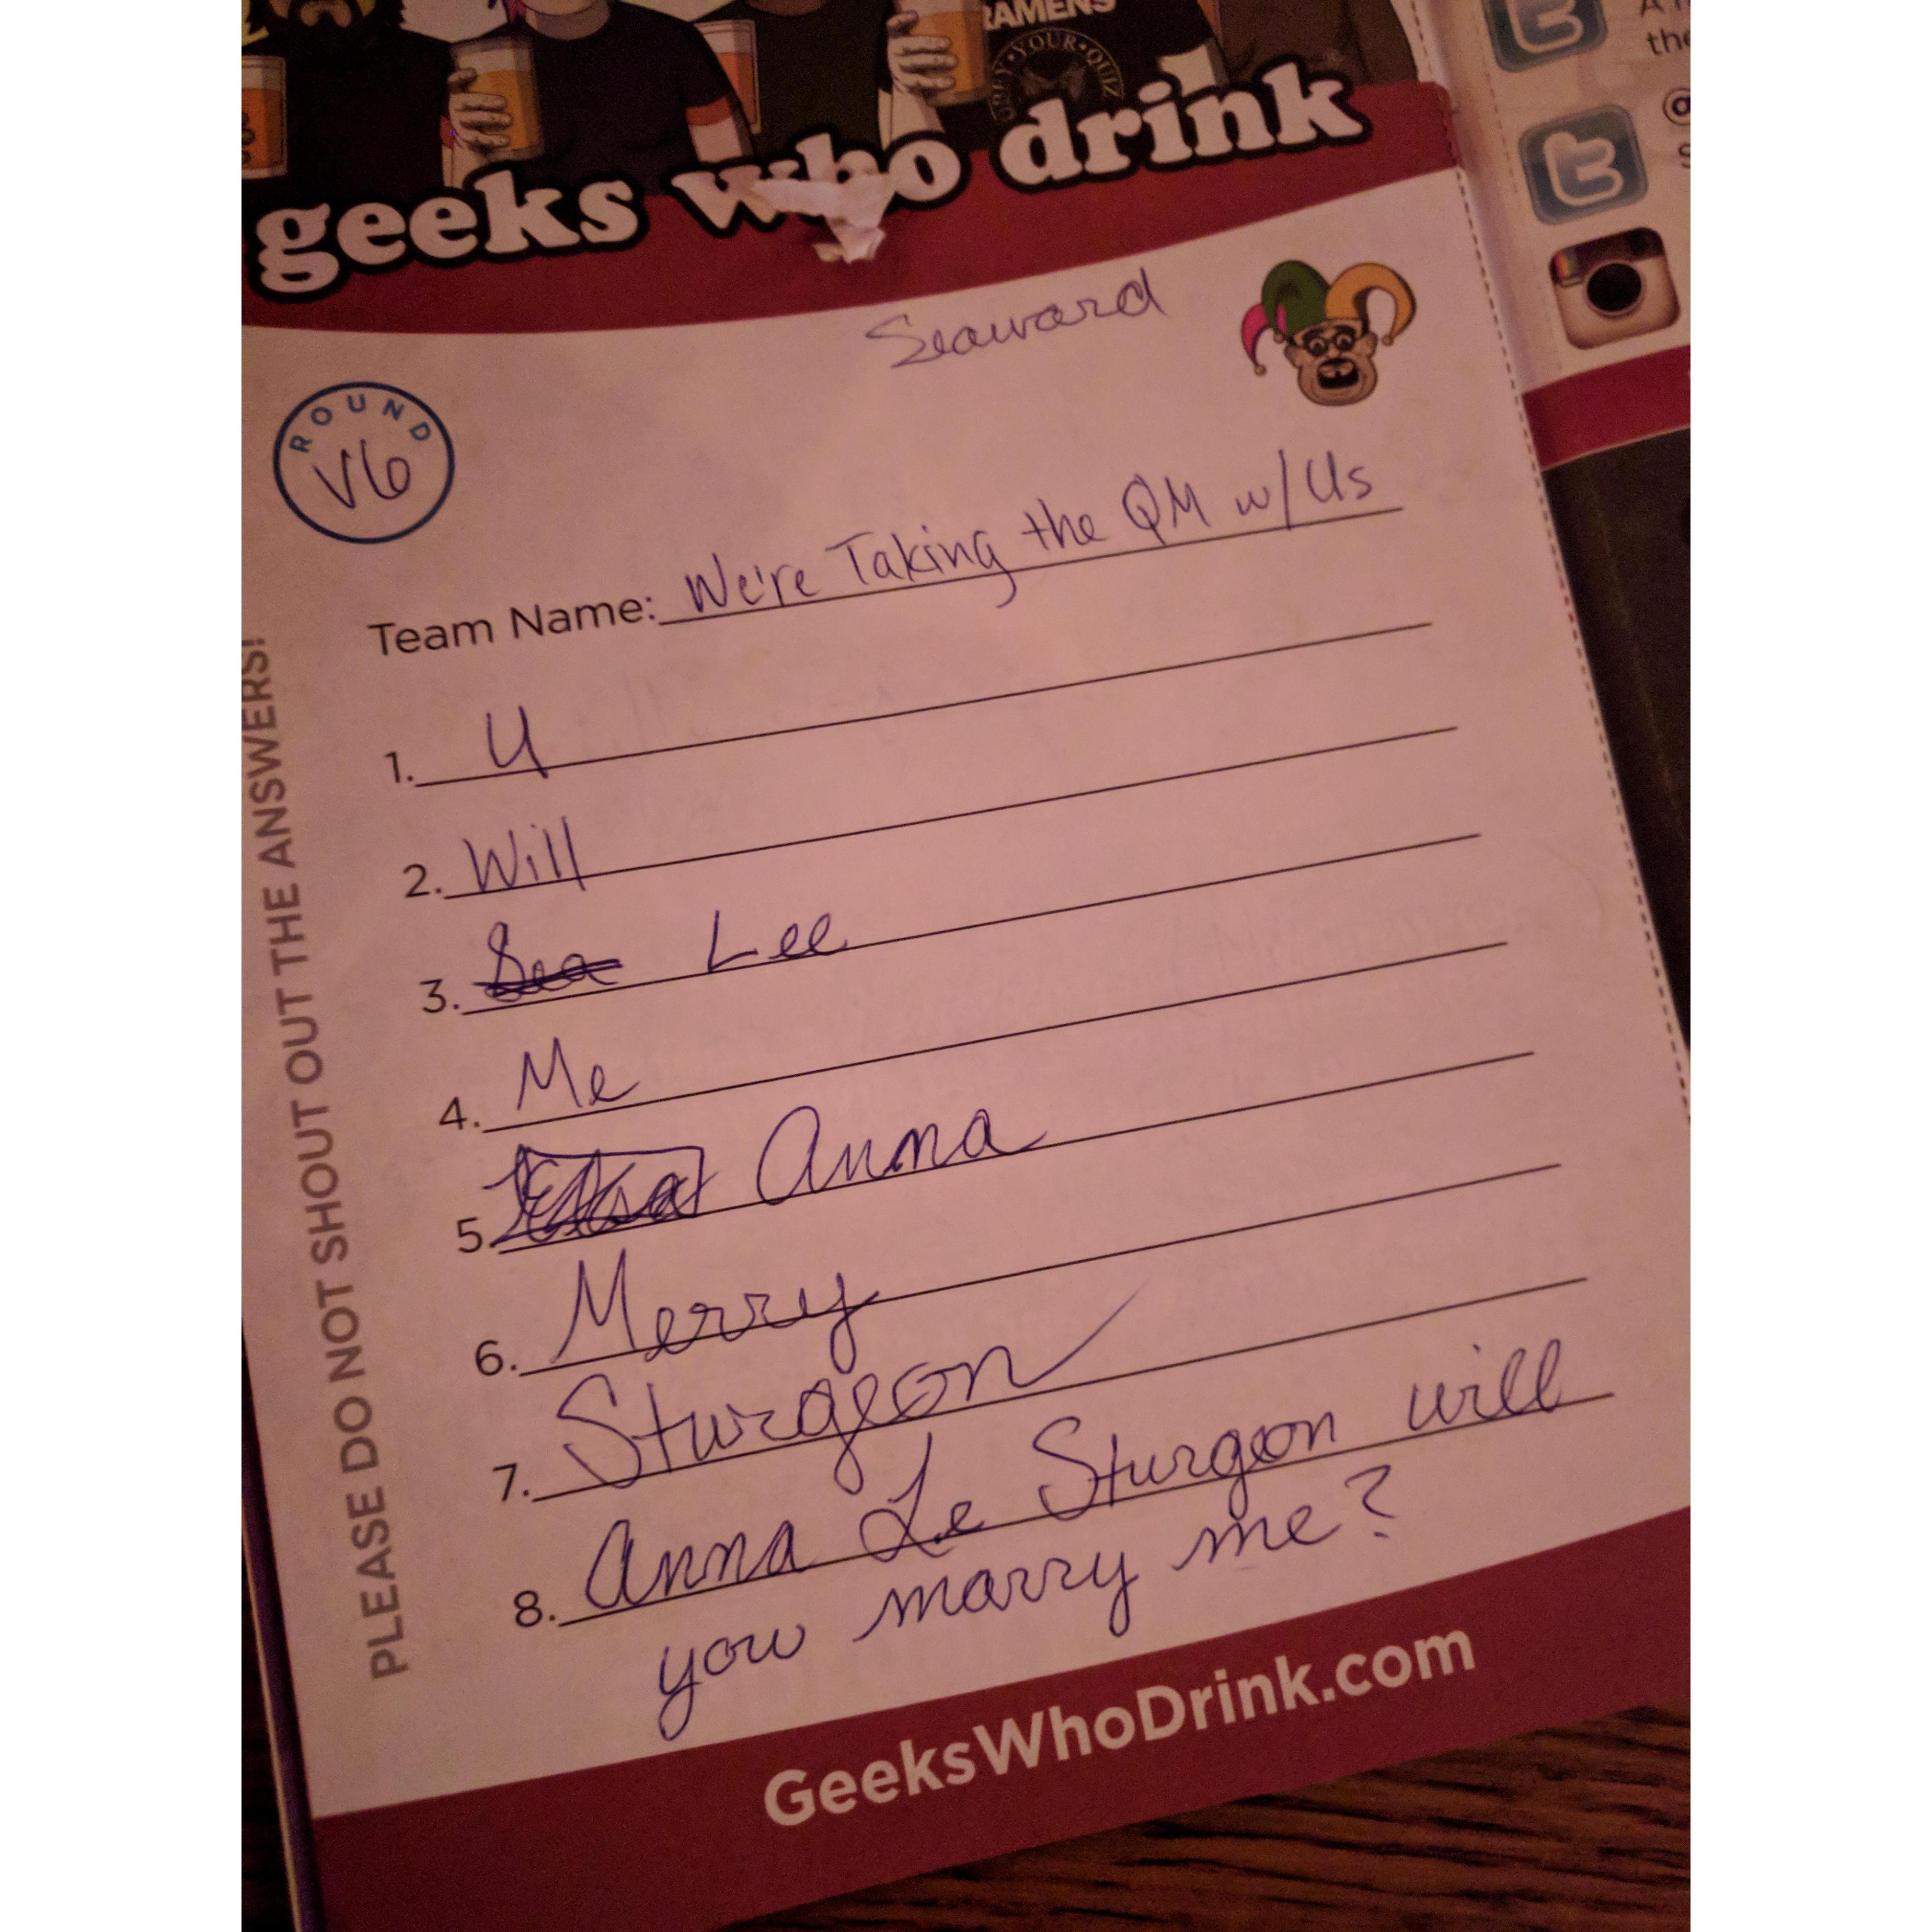 RAMENS
OBEY • YOUR • QUIZ
geeks who drink
the
@
Seaward
ROUND
V6
Team Name: We're Taking the QM w/Us
1. U
2. Will
3. Sea Lee
4. Me
5. Anna
6. Merry
7. Sturgeon
8. Anna Le Sturgeon will
you marry me?
PLEASE DO NOT SHOUT OUT THE ANSWERS!
GeeksWhoDrink.com